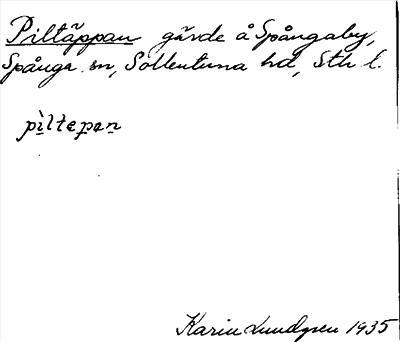 Piltäppan gärde å Spångaby,
Spånga sn, Sollentuna hd, Sth l.
pìltepan
Karin Lundgren 1935